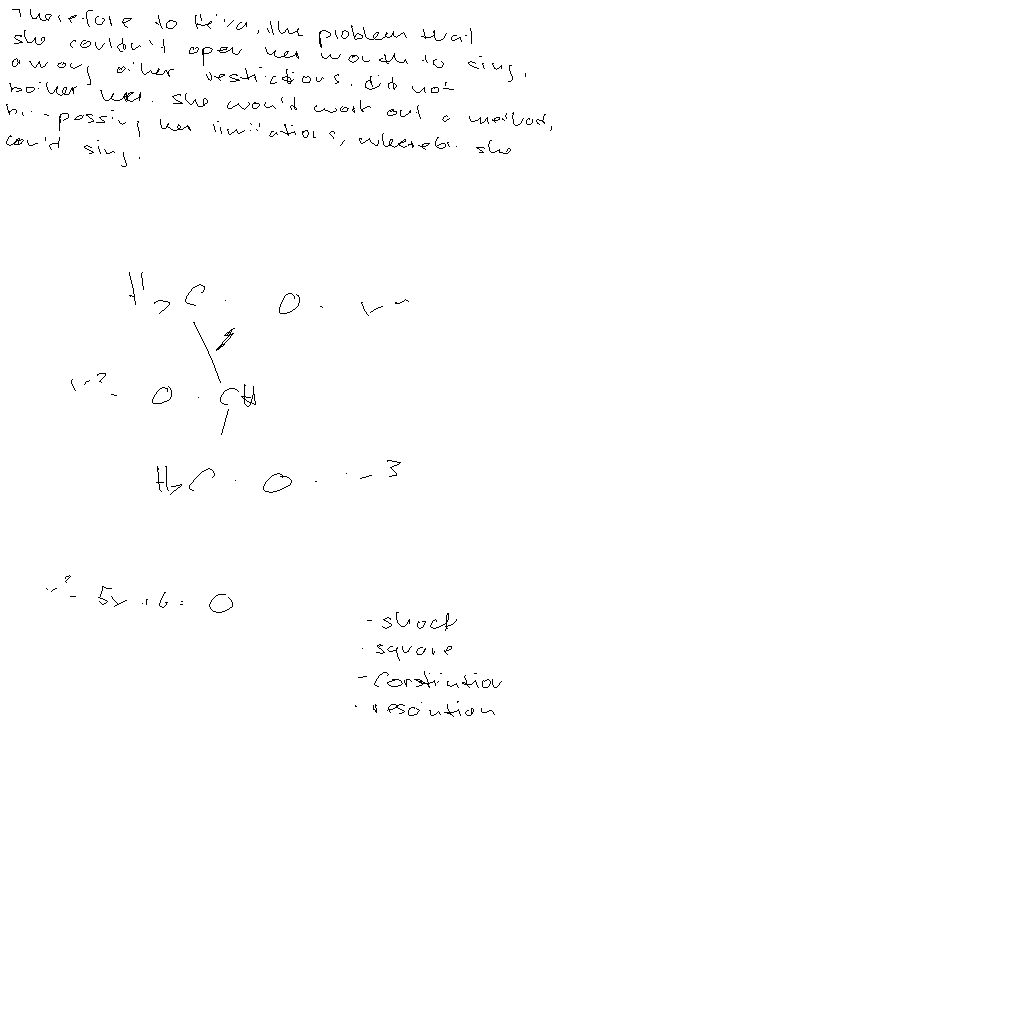 Therefore to Helva, the problem that
she couldn't open her mouth to sing,
among other restrictions, did not
bother her. she would work out a method,
by-passing her limitations, whereby she
could sing.
H₂C - O -
- O - CH
H₂C - O - 3
² - 5x + 6 = 0
- shock
- square
- Constitution
- resolution